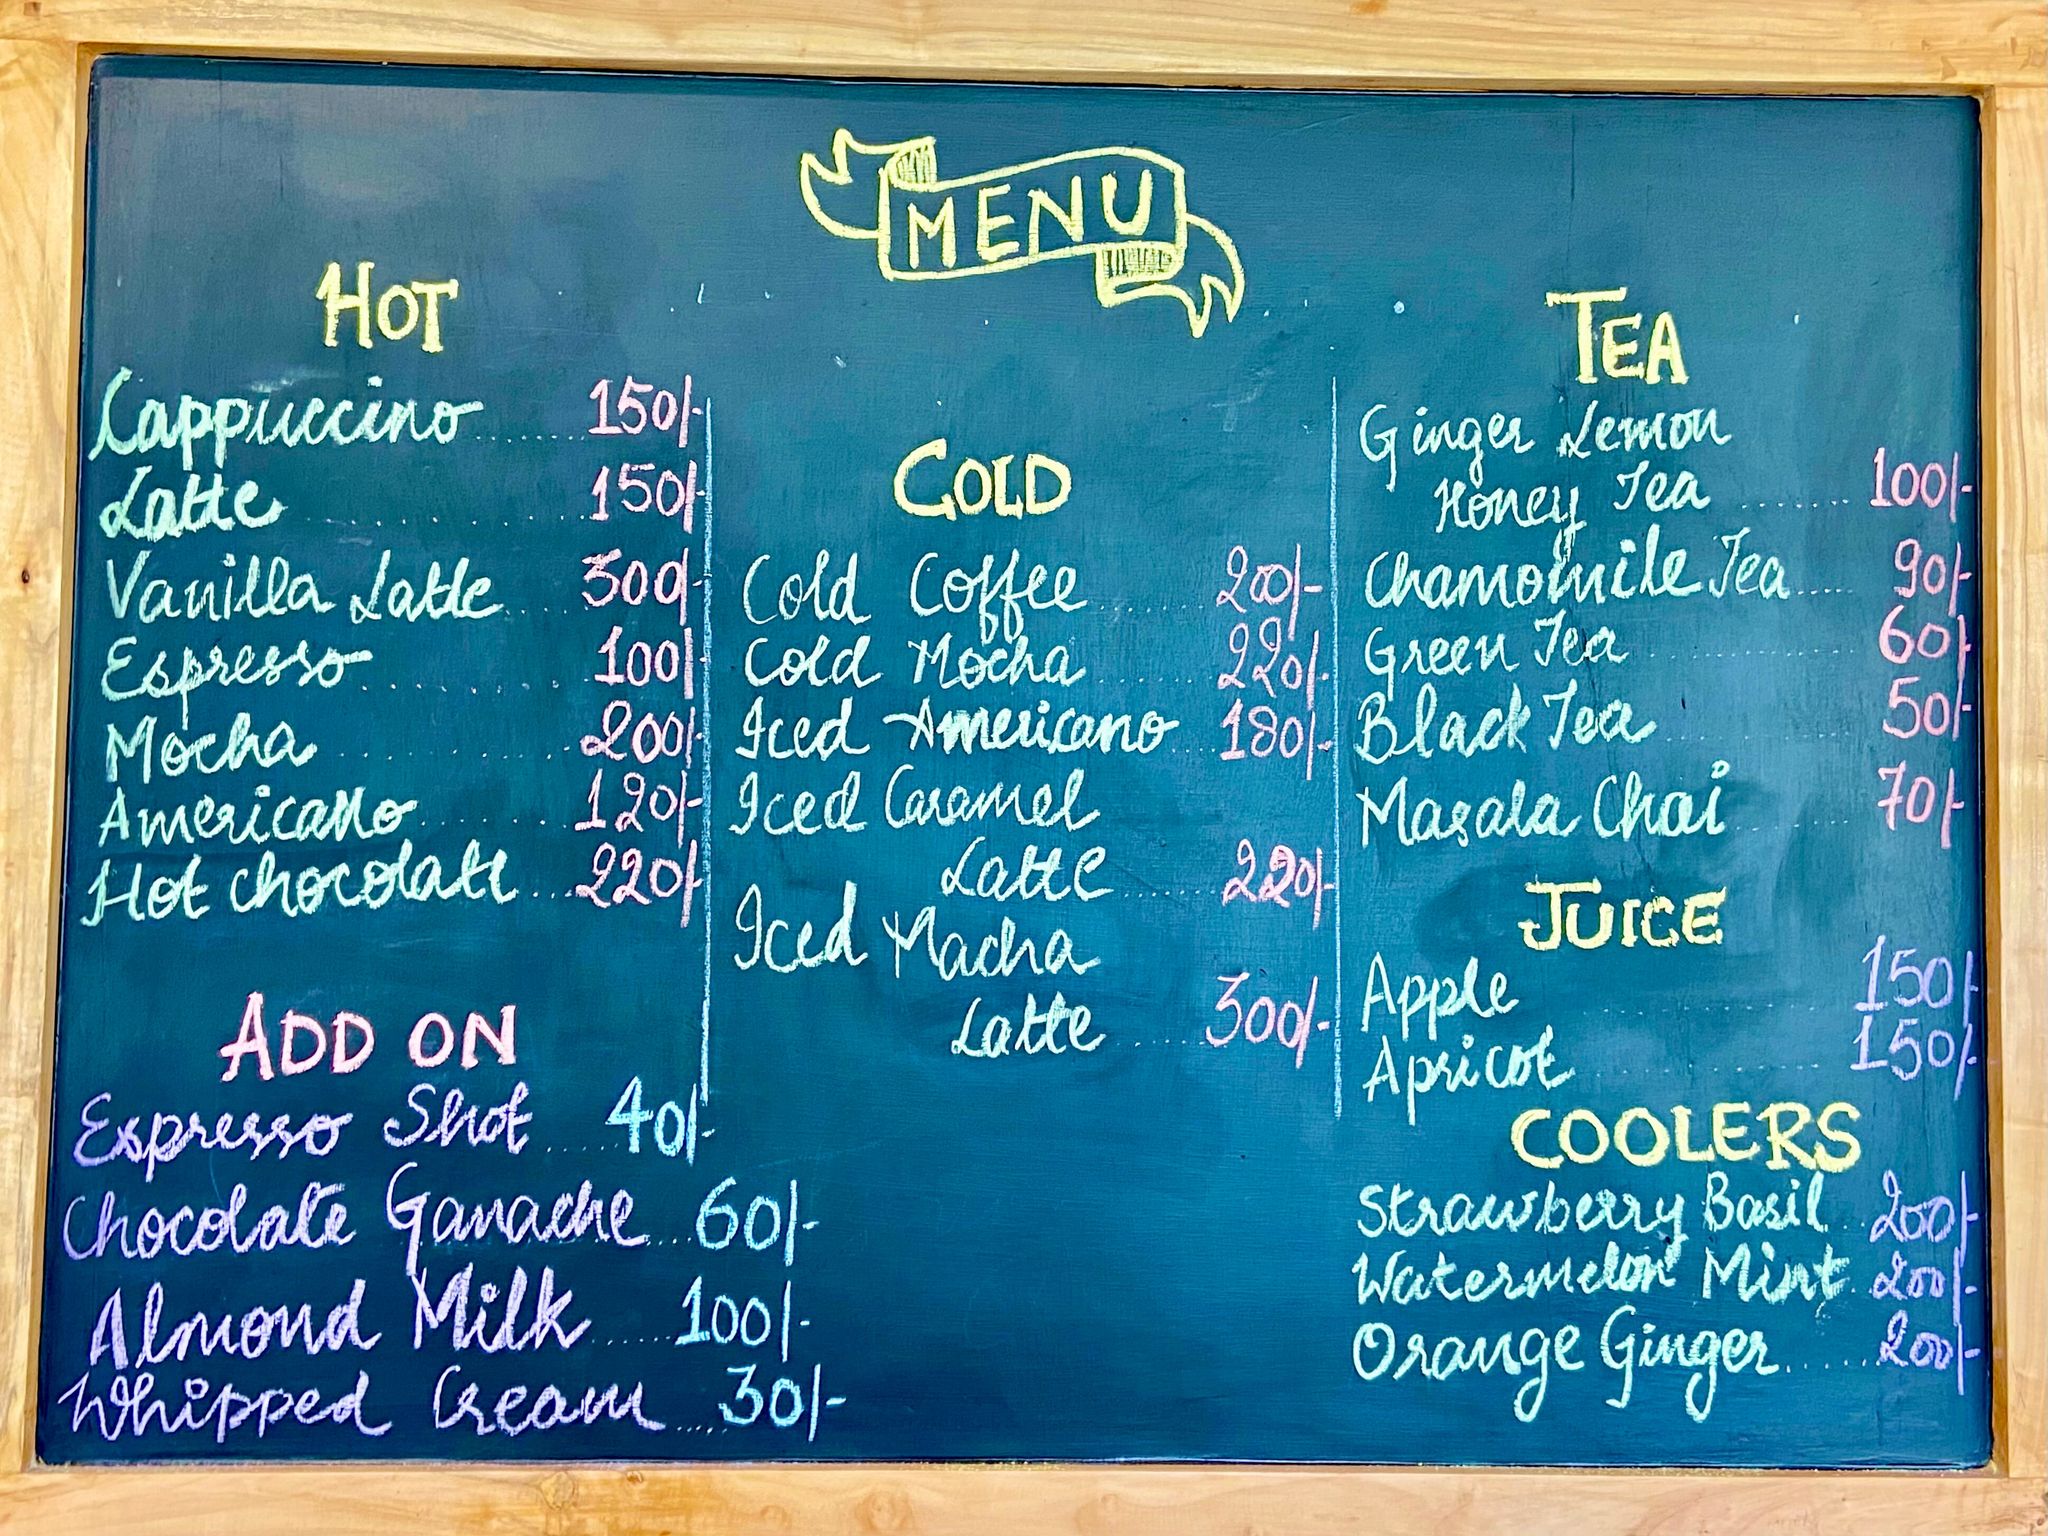 MENU
HOT
Cappuccino 150/-
Latte 150/-
Vanilla Latte 300/-
Espresso 100/-
Mocha 200/-
Americano 120/-
Hot chocolate 220/-
ADD ON
Espresso Shot 40/-
Chocolate Ganache 60/-
Almond Milk 100/-
Whipped Cream 30/-
COLD
Cold Coffee 200/-
Cold Mocha 220/-
Iced Americano 180/-
Iced Caramel
Latte 220/-
Iced Macha
Latte 300/-
TEA
Ginger Lemon
Honey Tea 100/-
Chamomile Tea 90/-
Green Tea 60/-
Black Tea 50/-
Masala Chai 70/-
JUICE
Apple 150/-
Apricot 150/-
COOLERS
Strawberry Basil 200/-
Watermelon Mint 200/-
Orange Ginger 200/-